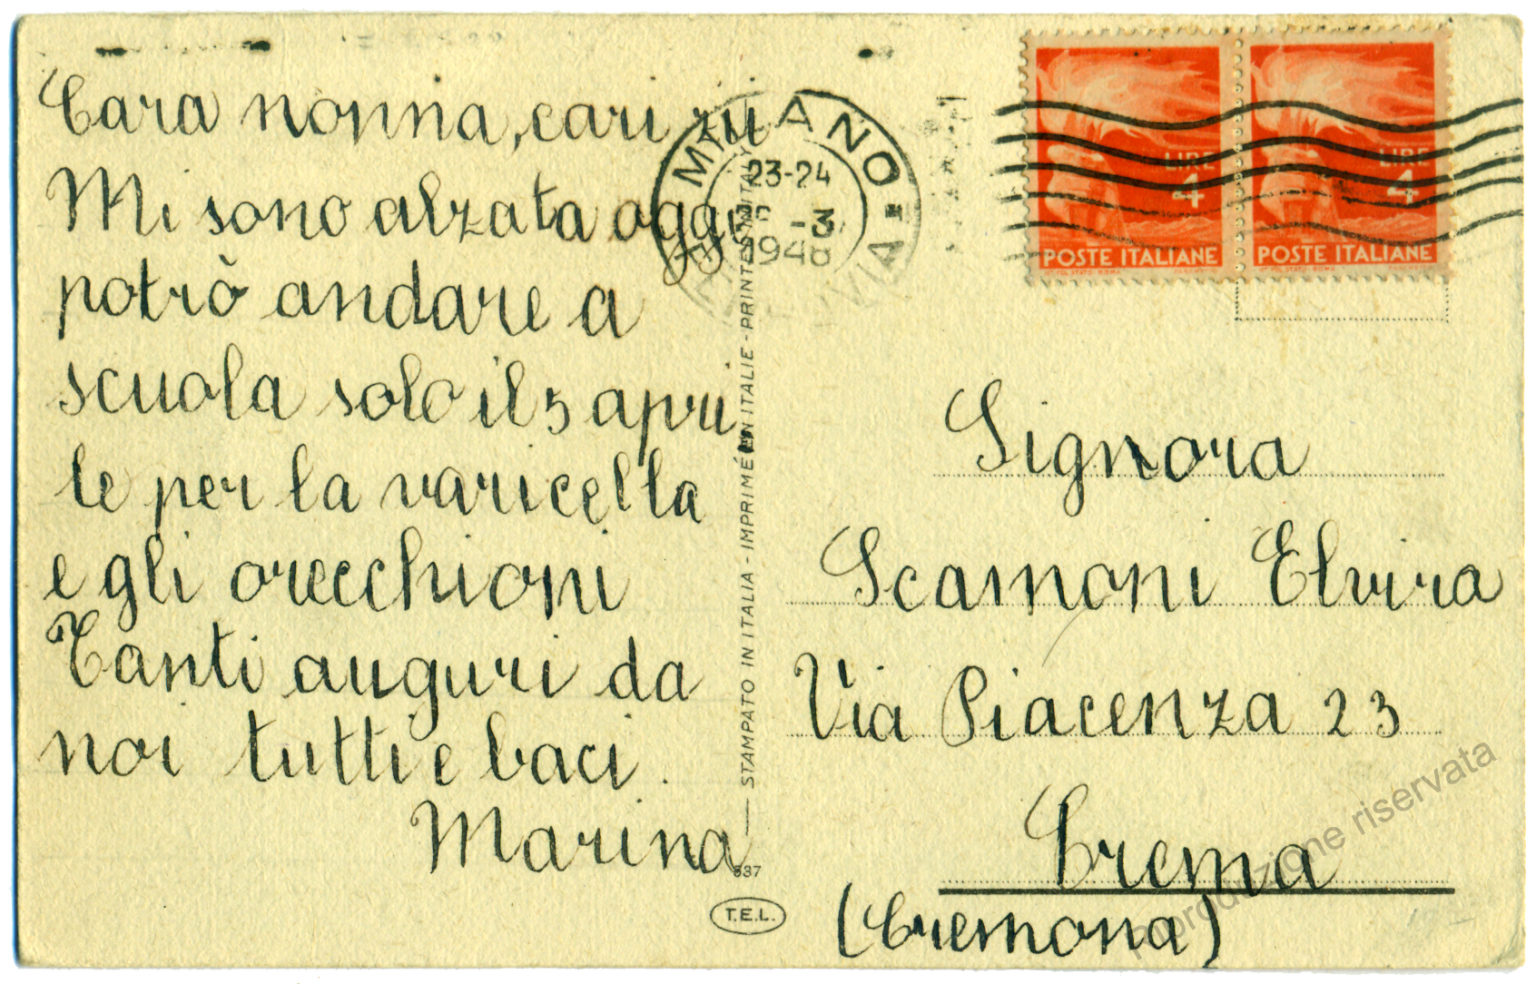 Cara nonna, cari zii
Mi sono alzata oggi
potrò andare a
scuola solo il 5 apri
le per la varicella
e gli orecchioni
Tanti auguri da
noi tutti e baci.
Marina
STAMPATO IN ITALIA - IMPRIMÉ EN ITALIE - PRINTED IN ITALY
537
T.E.L.
MILANO
23-24
-3
1948
VIA
LIRE
4
POSTE ITALIANE
LIRE
4
POSTE ITALIANE
Signora
Scamoni Elvira
Via Piacenza 23
Crema
(Cremona)
riproduzione riservata